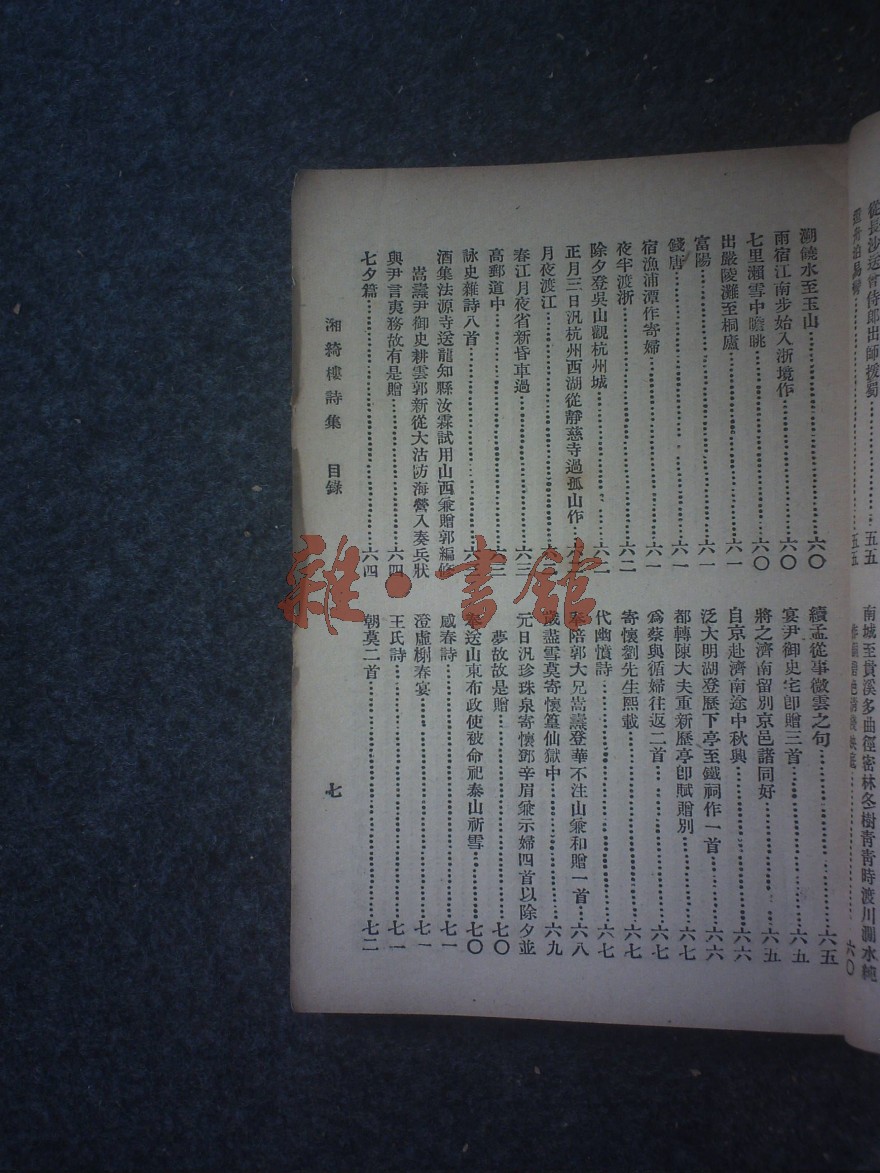 從長沙送曾侍郎出師援蜀……五五
五五
南城至貴溪多曲徑密林冬樹靑靑時渡川澗水純
六〇
溯饒水至玉山……六〇
雨宿江南步始入浙境作……六〇
七里瀨雪中瞻眺……六〇
出嚴陵灘至桐廬……六一
富陽……六一
錢唐……六一
宿漁浦潭作寄婦……六一
夜半渡浙……六二
除夕登吳山觀杭州城……六二
正月三日汎杭州西湖從靜慈寺過孤山作
月夜渡江
春江月夜省新昏車過……六三
高郵道中
詠史雜詩八首
酒集法源寺送龍知縣汝霖試用山西兼贈郭編修
嵩燾尹御史耕雲郭新從大沽防海營入奏兵狀
與尹言夷務故有是贈……六四
七夕篇……六四
續孟從事微雲之句……六五
宴尹御史宅卽贈三首……六五
將之濟南留別京邑諸同好……六五
自京赴濟南途中秋興……六六
泛大明湖登歷下亭至鐵祠作一首……六六
都轉陳大夫重新歷亭卽賦贈別……六七
爲蔡與循婦往返二首……六七
寄懷劉先生熙載……六七
代幽憤詩……六七
奉陪郭大兄嵩燾登華不注山兼和贈一首……六八
歲盡雪莫寄懷篁仙獄中……六九
元日汎珍珠泉寄懷鄧辛眉兼示婦四首以除夕並
夢故故是贈……七〇
奉送山東布政使被命祀泰山祈雪……七〇
感春詩……七一
澄虛榭春宴……七一
王氏詩……七一
朝莫二首……七二
湘綺樓詩集 目錄
七
雜·書館